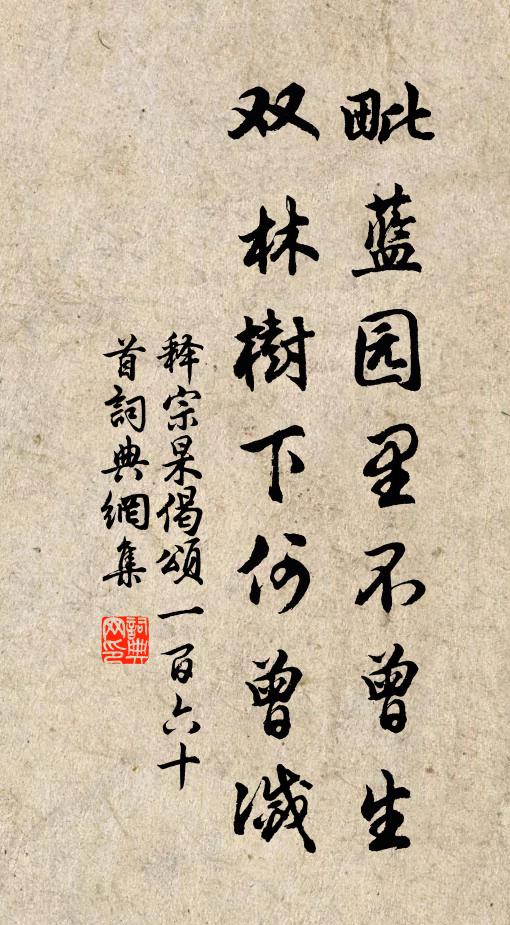 毗蓝园里不曾生
双林樹下何曾滅
释宗杲偈頌一百六十
首詞典網集
詞典网印